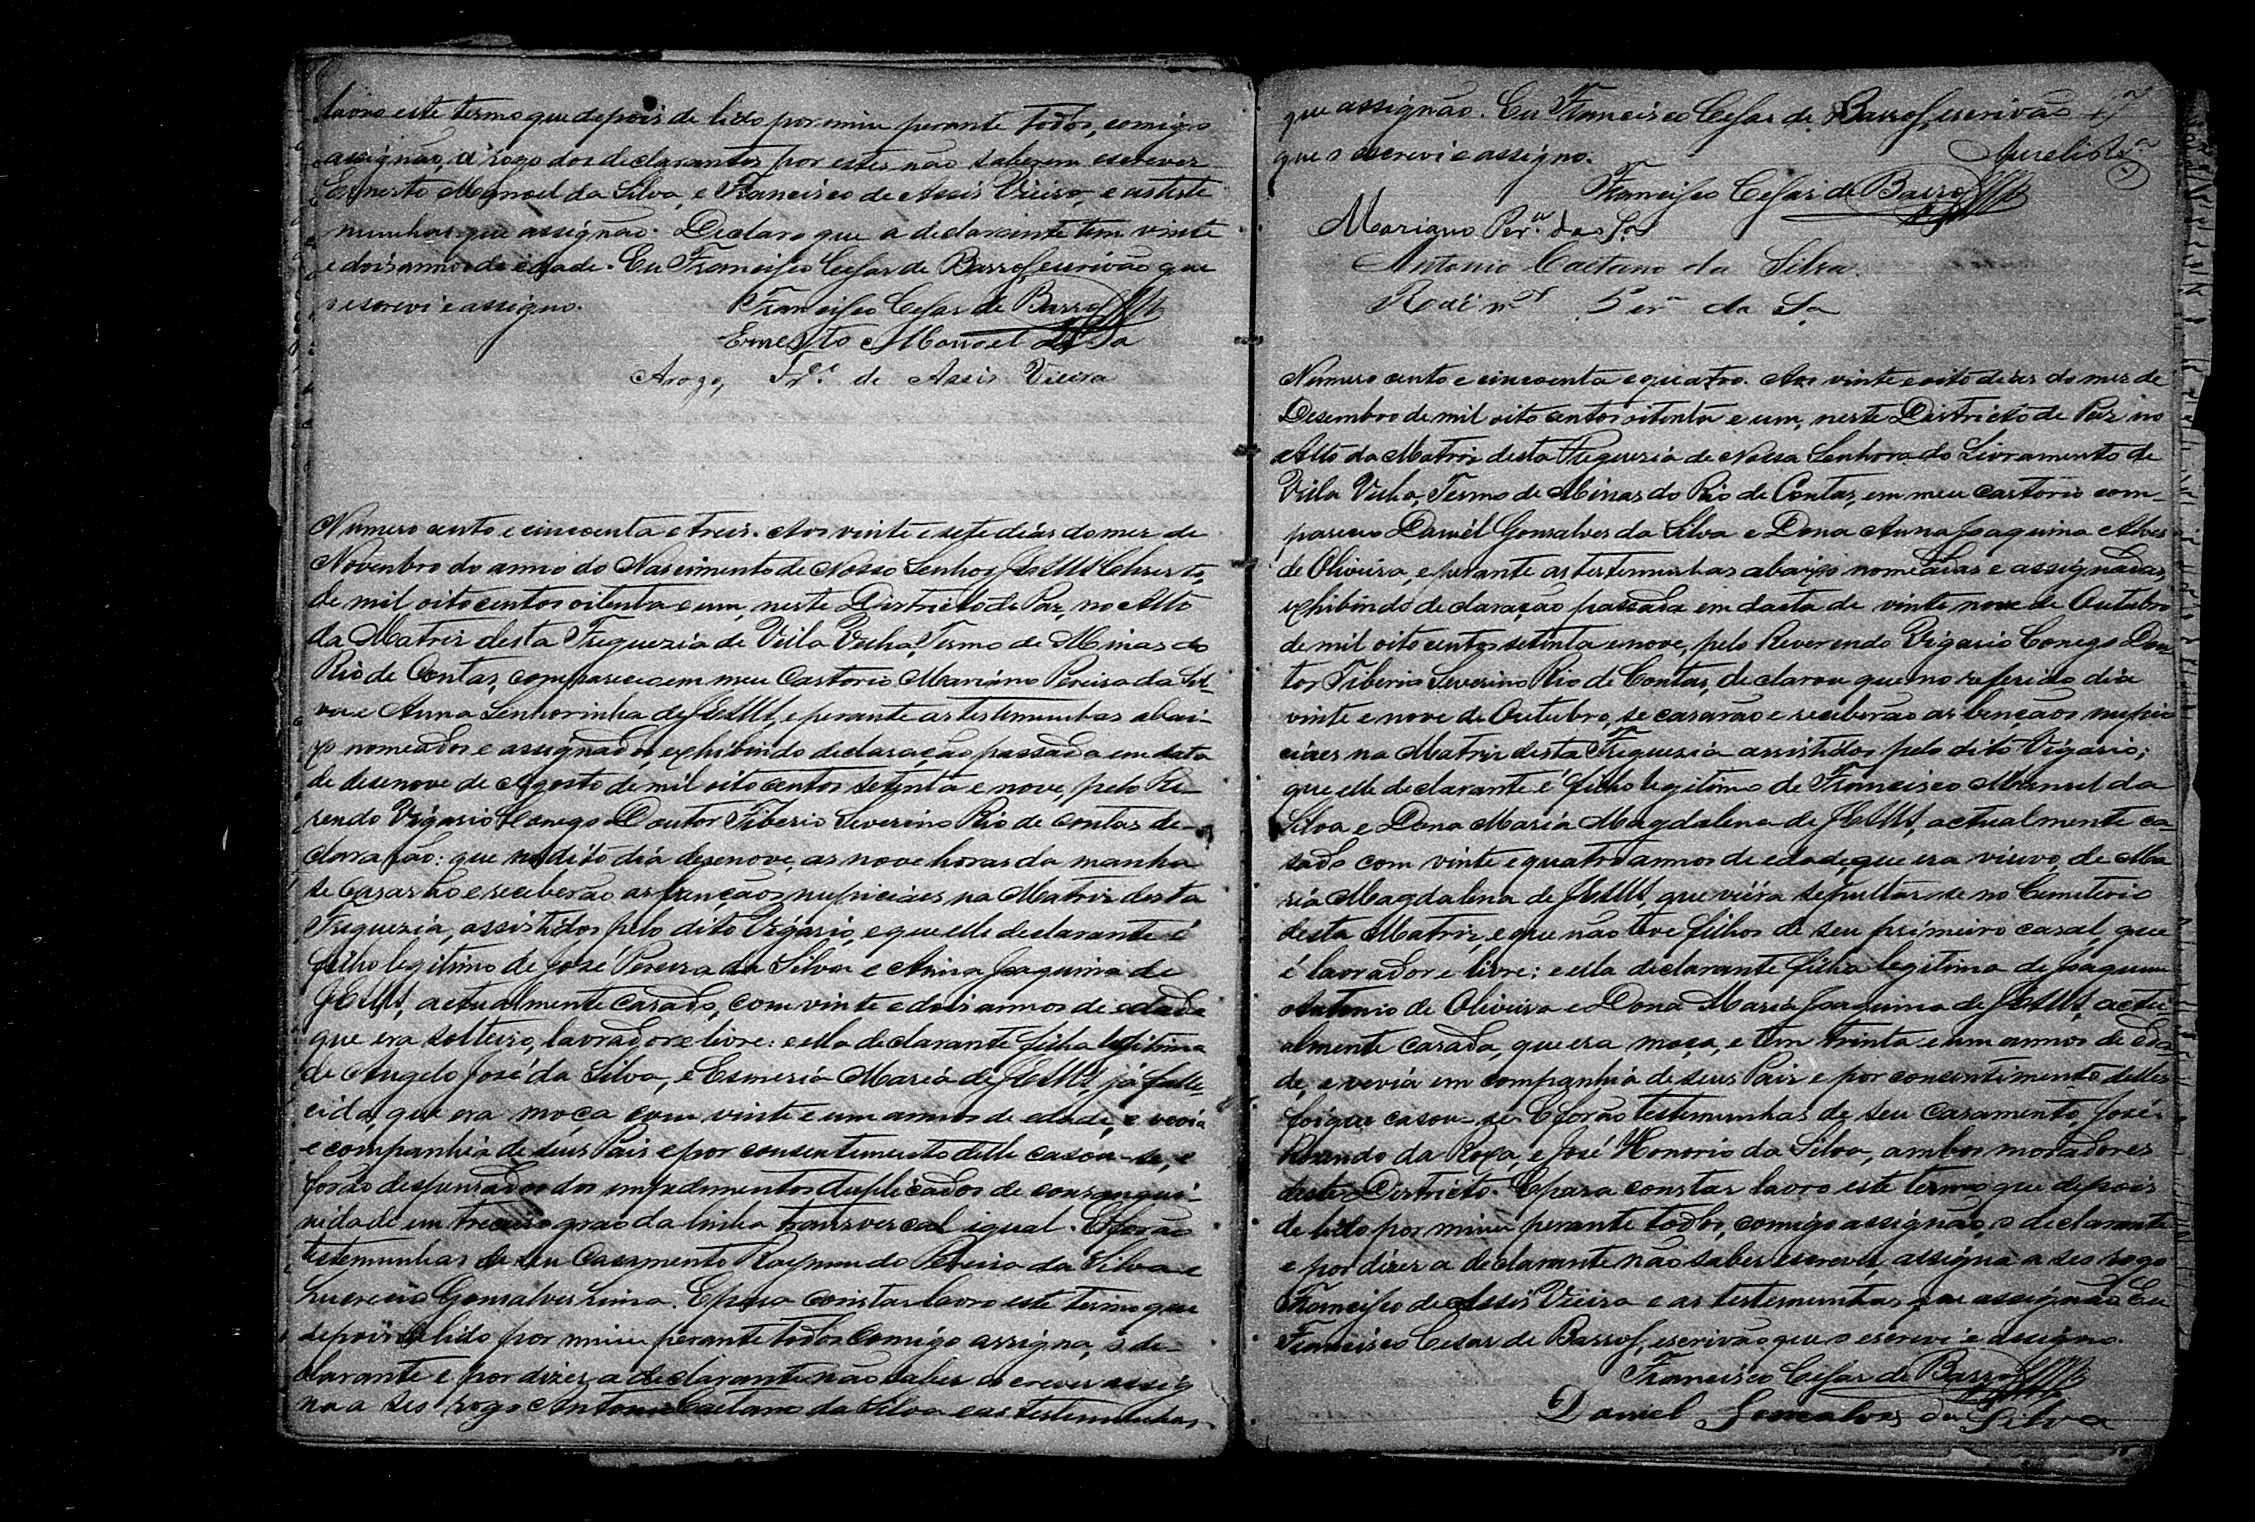 lavro este termo que depois de lido por mim perante todos, comigo
assignão, a rogo dos declarantes por estes não saberem escrever
Ernesto Manoel da Silva, e Francisco de Assis Vieira, e as teste
munhas que assignão. Declaro que a declarante tem vinte
e dois annos de idade. Eu Francisco Cesar de Barros, escrivão que
o escrevi e assigno.
Francisco Cesar de Barros
Ernesto Manoel da Sa
Arogo, Frco. de Assis Vieira
Numero cento e cincoenta e treis. Aos vinte e sete dias do mez de
Novembro do anno do Nascimento de Nosso Senhor JESUS Christo,
de mil oito centos oitenta e um, neste Districto de Paz, no Alto
da Matriz desta Freguezia de Villa Velha, Termo de Minas do
Rio de Contas, compareceo em meu Cartorio Mariano Pereira da Sil-
va e Anna Senhorinha de JESUS, e perante as testemunhas abai-
xo nomeados e assignados, exhibindo declaração passada em data
de desenove de Agosto de mil oito centos setenta e nove, pelo Re-
rendo Vigario Conego Doutor Tiberio Severino Rio de Contas de-
claração: que no dito dia desenove, as nove horas da manha
se casarão e receberão as bençaos nupiciaes na Matriz desta
Freguezia, assistidos pelo dito Vigario, e que elle declarante é
filho legitimo de José Pereira da Silva e Anna Joaquina de
JESUS, actualmente casado, com vinte e dois annos de edade
que era solteiro, lavrador e livre: e ella declarante filha legitima
de Angelo José da Silva, e Esmeria Maria de JESUS, já falle-
cida, que era moça com vinte e um annos de edade, e vevia
e companhia de seus Pais e por consentimento delle casou-se, e
forão dispensados dos impedimentos duplicados de consangui-
nidade em terceiro grao da linha transversal igual. E forão
testemunhas de seu Casamento Raymundo Pereira da Silva e
Lucrecio Gonsalves Lima. E para constar lavro este termo que
depois de lido por mim perante todos comigo assigna, o de-
clarante e por dizer a declarante não saber escrever assig
na a seo rogo Antonio Caetano da Silva e as testemunhas
que assignão. Eu Francisco Cesar de Barros, escrivão
que o escrevi e assigno.
Francisco Cesar de Barros
Mariano Per.ª da Sa
Antonio Caetano da Silva.
Per.ª da Sa
Numero cento e cincoenta e quatro. Aos vinte e oito dias do mez de
Desembro de mil oito centos oitenta e um, neste Districto de Paz no
Alto da Matriz desta Freguezia de Nossa Senhora do Livramento de
Villa Velha, Termo de Minas do Rio de Contas, em meu Cartorio com-
pareceo Daniel Gonsalves da Silva e Dona Anna Joaquina Alves
de Oliveira, e perante as testemunhas abaixo nomeadas e assignadas,
exhibindo declaração passada em dacta de vinte nove de Outubro
de mil oito centos setenta e nove, pelo Reverendo Vigario Conego Dou
tor Tiberio Severino Rio de Contas, declarou que no referido dia
vinte e nove de Outubro, se casarão e receberão as bençaos nupici
ciaes na Matriz desta Freguezia assistidos pelo dito Vigario;
que elle declarante é filho legitimo de Francisco Manuel da
Silva e Dona Maria Magdalena de JESUS, actualmente ca-
sado com vinte e quatro annos de edade, que era viuvo de Ma
ria Magdalena de JESUS, que viéra sepultar-se no Cemiterio
desta Matriz, e que não teve filhos de seu primeiro casal, que
é lavrador e livre: e ella declarante filha legitima de Joaquim
Antonio de Oliveira e Dona Maria Joaquina de JESUS, actu
almente casada, que era moça, e tem trinta e um annos de eda
de, e vevia em companhia de seus Pais e por consentimento delles
foi que casou-se. E forão testemunhas de seu casamento, José
da Roxa, e José Honorio da Silva, ambos moradores
deste Districto. E para constar lavro este termo que depois
de lido por mim perante todos, comigo assignão, o declarante
e por dizer a declarante não saber escrever, assigna a seo rogo
Francisco de Assis Vieira e as testemunhas que assignão. Eu
Francisco Cesar de Barros, escrivão que o escrevi e assigno.
Francisco Cesar de Barros
Daniel Gonsalves da Silva